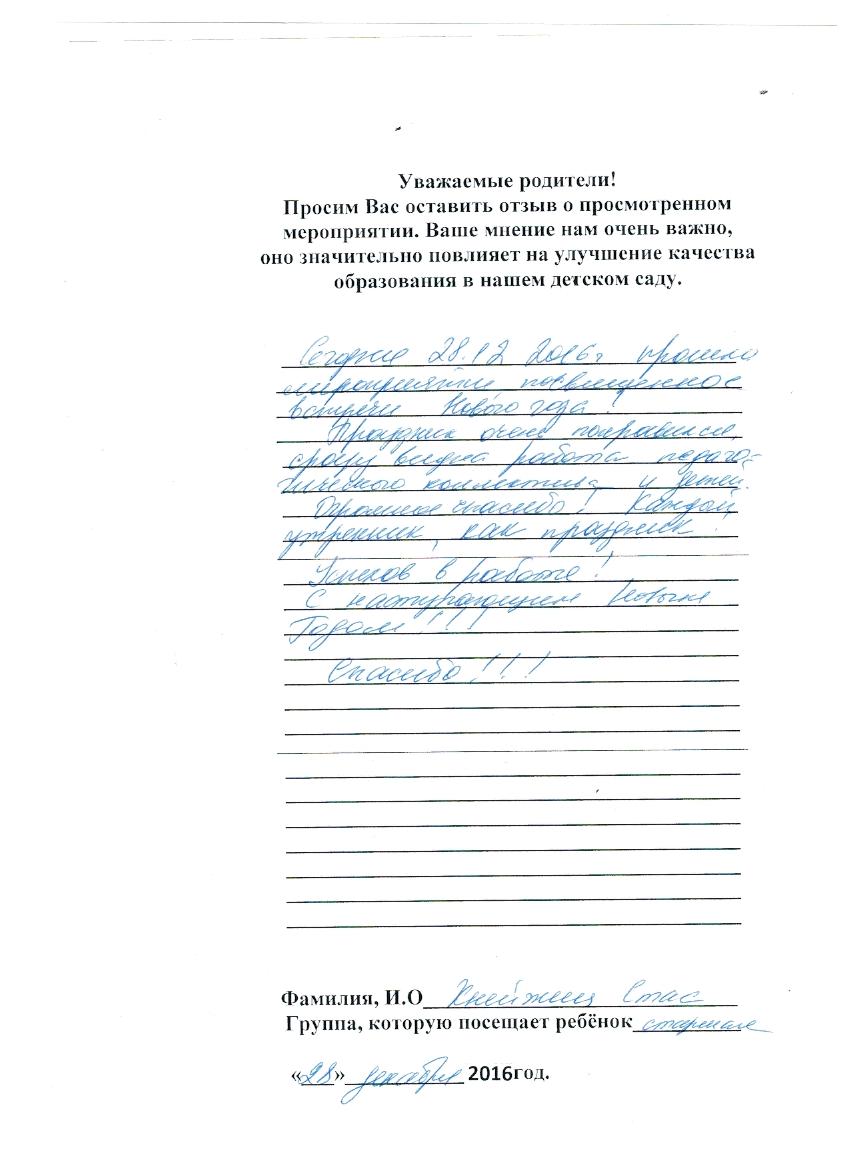 Уважаемые родители!
Просим Вас оставить отзыв о просмотренном
мероприятии. Ваше мнение нам очень важно,
оно значительно повлияет на улучшение качества
образования в нашем детском саду.
Сегодня 28.12 2016г прошло
мероприятии посвященное
встречи Нового года!
Праздник очень понравился,
сразу видна работа педаго-
гического коллектива и детей.
Огромное спасибо! Каждый
утренник, как праздник.
Успехов в работе!
С наступающим Новым
Годом!!!
Спасибо!!!
Фамилия, И.О Стас
Группа, которую посещает ребёнок старшая
«28» декабря 2016год.